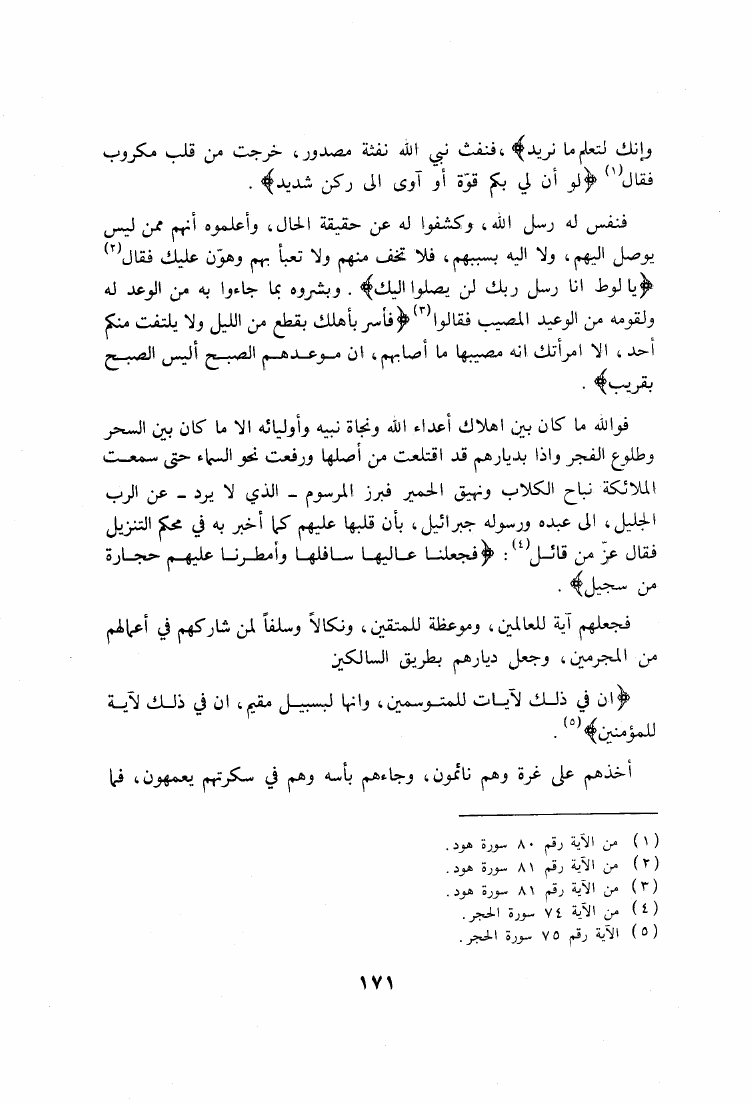 وإنك لتعلم ما نريد﴾ ،فنفث نبي الله نفثة مصدور، خرجت من قلب مكروب
فقال(١) ﴿لو أن لي بكم قوّة أو آوى الى ركن شديد﴾ .
فنفس له رسل الله، وكشفوا له عن حقيقة الحال، وأعلموه أنهم ممن ليس
يوصل اليهم، ولا اليه بسببهم، فلا تخف منهم ولا تعبأ بهم وهوّن عليك فقال(٢)
﴿يا لوط انا رسل ربك لن يصلوا اليك﴾ . وبشروه بما جاءوا به من الوعد له
ولقومه من الوعيد المصيب فقالوا(٣) ﴿فأسر بأهلك بقطع من الليل ولا يلتفت منكم
أحد، الا امرأتك انه مصيبها ما أصابهم، ان موعدهم الصبح أليس الصبح
بقريب﴾ .
فوالله ما كان بين اهلاك أعداء الله ونجاة نبيه وأوليائه الا ما كان بين السحر
وطلوع الفجر واذا بديارهم قد اقتلعت من أصلها ورفعت نحو السماء حتى سمعت
الملائكة نباح الكلاب ونهيق الحمير فبرز المرسوم - الذي لا يرد - عن الرب
الجليل، الى عبده ورسوله جبرائيل، بأن قلبها عليهم كما أخبر به في محكم التنزيل
فقال عزّ من قائل(٤) : ﴿فجعلنا عاليها سافلها وأمطرنا عليهم حجارة
من سجيل﴾ .
فجعلهم آية للعالمين، وموعظة للمتقين، ونكالاً وسلفاً لمن شاركهم في أعمالهم
من المجرمين، وجعل ديارهم بطريق السالكين
﴿ان في ذلك لآيات للمتوسمين، وانها لبسبيل مقيم، ان في ذلك لآية
للمؤمنين﴾(٥) .
أخذهم على غرة وهم نائمون، وجاءهم بأسه وهم في سكرتهم يعمهون، فما
(١) من الآية رقم ٨٠ سورة هود.
(٢) من الآية رقم ٨١ سورة هود.
(٣) من الآية رقم ٨١ سورة هود.
(٤) من الآية ٧٤ سورة الحجر.
(٥) الآية رقم ٧٥ سورة الحجر.
١٧١